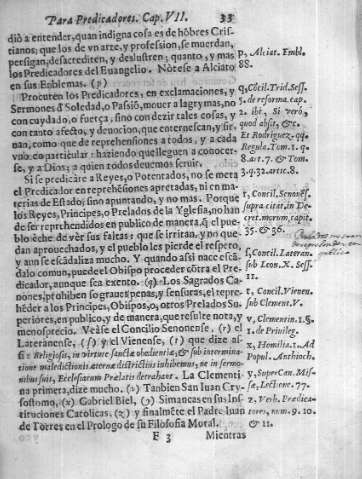 Para Predicadores. Cap. VII. 33
diò a entender, quan indigna cosa es de hõbres Cris-
tianos; que los de vn arte, y profession, se muerdan,
persigan, desacrediten, y deslustren; quanto, y mas
los Predicadores del Euangelio. Nótese a Alciato
en sus Emblemas. (p)
Procuren los Predicadores, en exclamaciones, y
Sermones d̃ Soledad, o Passiõ, mouer a lagrymas, no
con cuydado, o fuerça, sino con dezir tales cosas, y
con tanto afecto, y deuocion, que enternescan, y sir-
uan, como que de reprehensiones a todos, y a cada
vno en particular: haziendo que lleguen a conocer-
se, y a Dios; a quien todos deuemos seruir.
Si se predicàre a Reyes, o Potentados, no se meta
el Predicador en reprehẽsiones apretadas, ni en ma-
terias de Estado; sino apuntando, y no mas. Porque
los Reyes, Principes, o Prelados de la Yglesia, no han
de ser reprehendidos en publico de manera, q̃ el pue-
blo eche de ver sus faltas: que se irritan, y no que-
dan aprouechados, y el pueblo les pierde el respeto,
y aun se escãdaliza mucho. Y quando assi nace escã-
dalo comun, puede el Obispo proceder cõtra el Pre-
dicador, aunque sea exento. (q) Los Sagrados Ca-
nones, prohiben so graues penas, y sensuras, el repre-
hẽder a los Principes, Obispos, o, otros Prelados Su-
periores, en publico, y de manera, que resulte nota, y
menosprecio. Veàse el Concilio Senonense, (r) el
Lateranense, (s) y el Vienense, (t) que dize as-
si: Religiosis, in virtute sanctæ obedientiæ, & sub intermina-
tione maledictionis æternæ districtius inhibemus, ne in sermo-
nibus suis, Ecclesiarum Prælatis detrahant. La Clementi
na primera, dize mucho. (v) Tanbien San Iuan Cry-
sostomo, (x) Gabriel Biel, (y) Simancas en sus Ins-
tituciones Catolicas, (z) y finalmẽte el Padre Iuan
de Torres en el Prologo de su Filosofia Moral.
F 3 Mientras
p, Alciat. Embl.
88.
q, Cõcil. Trid. Sess.
5. de reforma. cap.
2. ibi. Si verò,
quod absit, &c.
Et Rodriguez. qq.
Regula. Tom. 1. q.
8. art. 7. & Tom.
3. q. 32. artic. 8.
r, Concil. Senonẽs.
supra citat. in De-
cret. morum, capit.
35. & 36.
s, Concil. Lateran.
sub Leon. X. Sess.
11.
t, Concil. Vienen.
sub Clement. V.
v, Clementin. 1. §.
1. de Priuileg.
x, Homilia. 1. Ad
Popul. Anthioch.
y, Super Can. Mis-
sæ, Lectione. 77.
z, Verb. Prædica-
tores, num. 9. 10.
& 11.